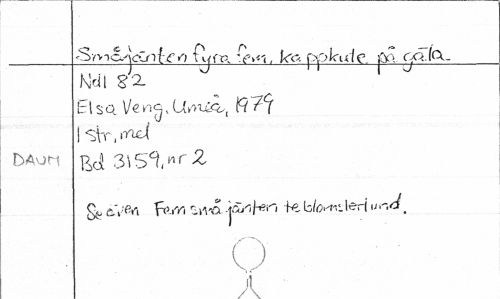 Småjänten fyra fem, kappkute på gåla
Ndl 82
Elsa Veng, Umeå, 1979
1 str, mel
DAUM Bd 3159, nr 2
Se även Fem små jänten te blomsterlund.